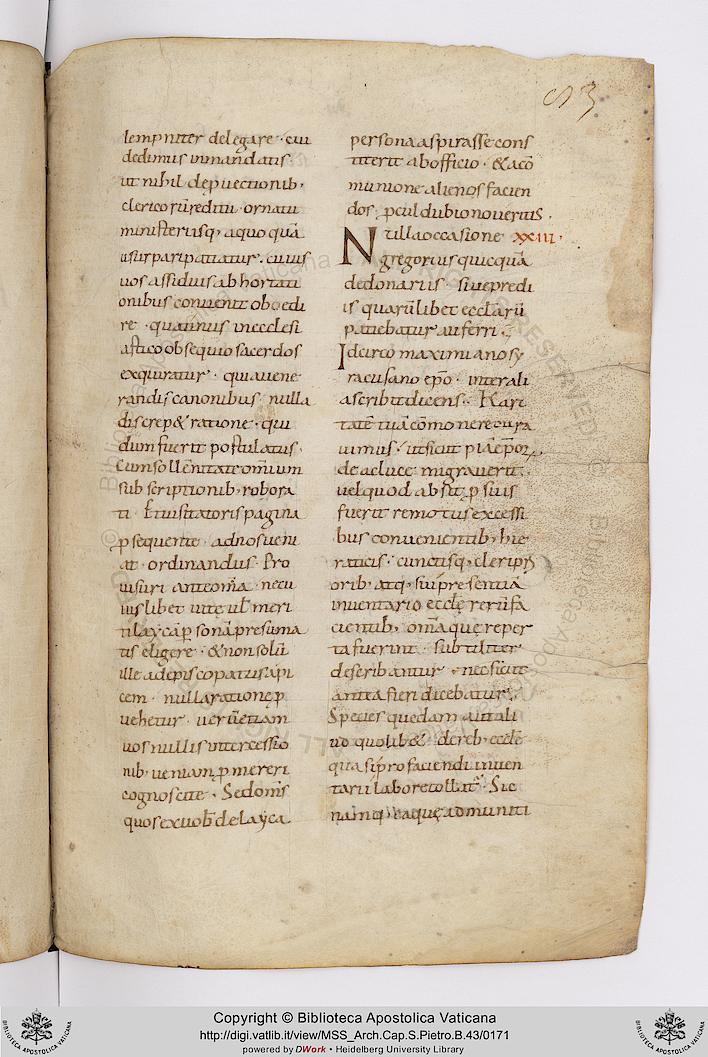 lempniter delegare · cui
dedimus in mandatis ·
ut nihil de p̱uectionib ·
clericorū reditu · ornatu
ministeriisq · aquo quā
usurpari patiatur · cuius
uos assiduis ab hortati
onibus conuenit oboedi
re · quatinus inecclesi
astico obsequio sacerdos
exquiratur · qui a uene
randis canonibus · nulla
discrep& ratione · qui
dum fuerit postulatus ·
Cum sollēnitate omīum
subscriptionib · robora
ti · Et uisitatoris pagina
p̱sequente · ad nos ueni
at · ordinandus · Pro
uisuri ante omīa · ne cu
ius libet uite ul meri
ti laycā p̱sonā presuma
tis eligere · & non solū
ille ad episcopatus api
cem · nulla ratione p̱
uehetur · uerū etiam
uos nullis intercessio
nib · ueniam p̱mereri
cognoscite · Sed om̄s
quos ex uob̄ de layca
persona aspirasse cons
titerit ab officio · & acō
munione alienos facien
dos · p̱cul dubio noueritis ·
Nulla occasione xxiii ·
gregorius quicquā
de donariis · siue predi
is quarūlibet ecclarū
patiebatur auferri ·
Idcirco maximiano sy
racusano ep̄o · inter ali
a scribit dicens · Kari
tatē tuā cōmonere cura
uimus · ut sicut
de ac luce migrauerit ·
uel quod absit p̱ suis
fuerit remotus excessi
bus conuenientib · hie
raticis · cunctisq · cleri p̱
orib · atq · sui presentia
inuentario eccle rerū fa
cientib · omīa quę reper
ta fuerint · subtiliter
describantur · nec sicut
antea fieri dicebatur ·
Species quedam aut ali
ud quolib& · de reb · eccle
quasi pro faciendi inuen
tarii labore tollat · Sic
namq · ea quę ad muniti
Copyright © Biblioteca Apostolica Vaticana
http://digi.vatlib.it/view/MSS_Arch.Cap.S.Pietro.B.43/0171
powered by DWork • Heidelberg University Library